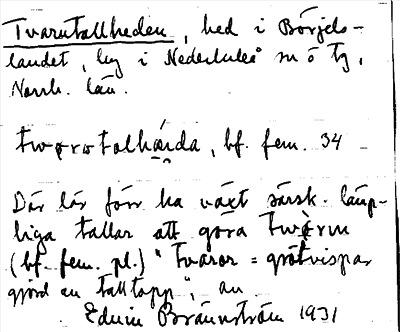 Tvarutallheden, hed i Börjels-
landet, by i Nederluleå sn ö tg,
Norrb. län.
twørotalhǟrda, bf. fem. 34
Där lär förr ha växt särsk. lämp-
liga tallar att göra
(bf. fem. pl.) "tvaror = grötvispar
gjord av talltopp", av
Edwin Brännström 1931